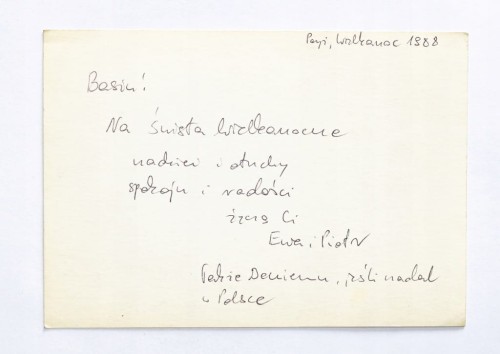 Paryż, Wielkanoc 1988
Basiu!
Na Święta Wielkanocne
nadziei i otuchy
spokoju i radości
życzą Ci
Ewa i Piotr
także, jeśli nadal
w Polsce